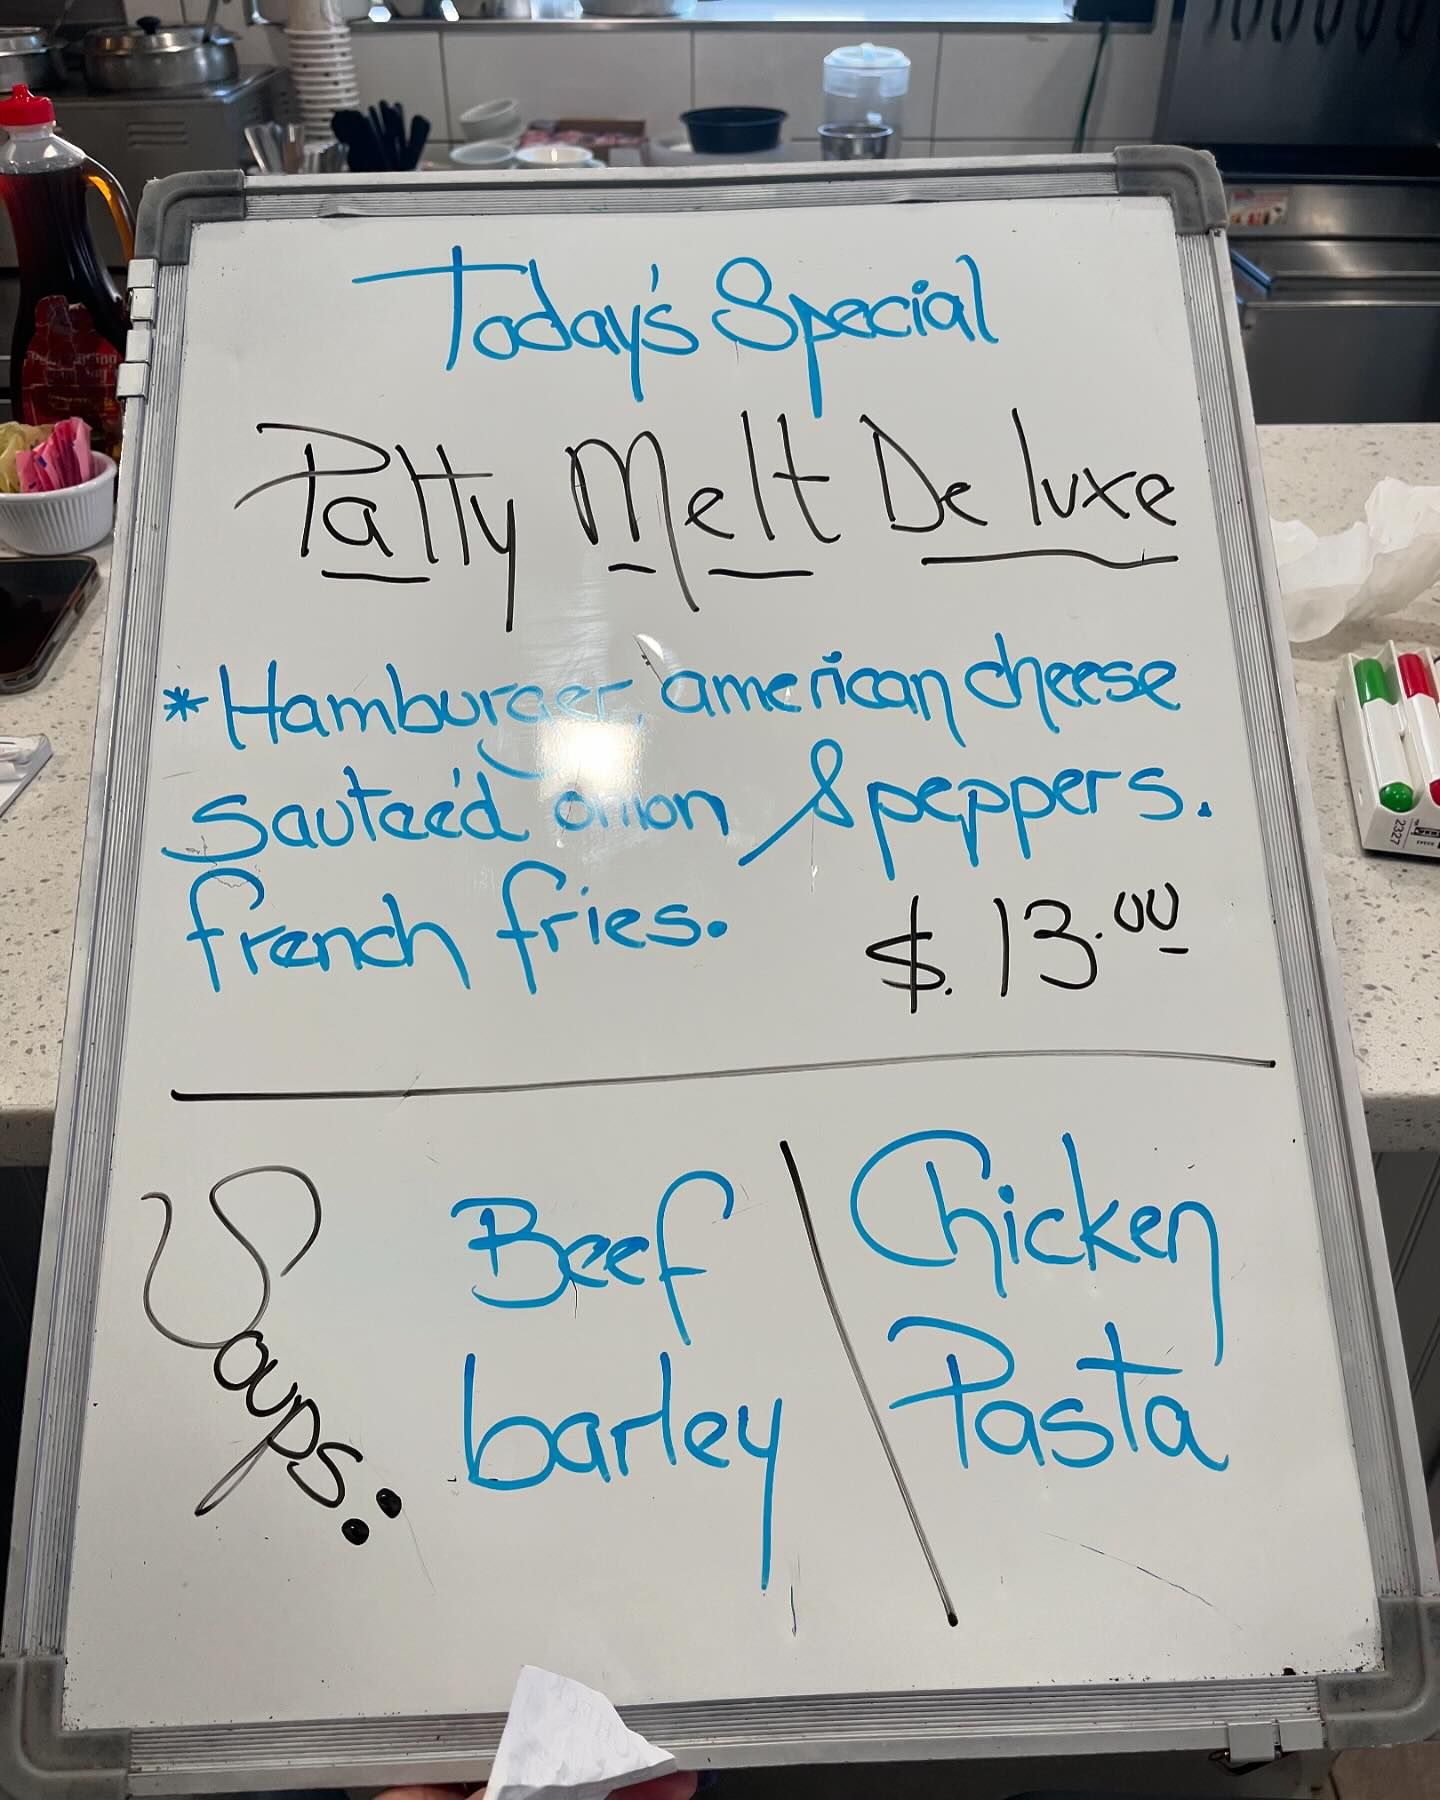 Today's Special
Patty Melt De luxe
* Hamburger, american cheese
sauteéd onion & peppers.
french fries. $. 13.00
Soups:
Beef
barley
Chicken
Pasta
2327